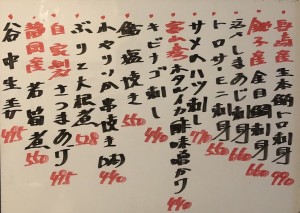 長島産生本鮪トロ刺身990
銚子産金目鯛刺身660
活〆しまあじ刺身660
トロサーモン刺身560
サメのハツ刺し770
富山産ホタルイカ酢味噌がけ440
キビナゴ刺し440
鮎塩焼き560
丸ヤリイカ串焼き(鳴)440
ぶりと大根煮528
自家製さつまあげ495
静岡産若筍煮560
谷中生姜495